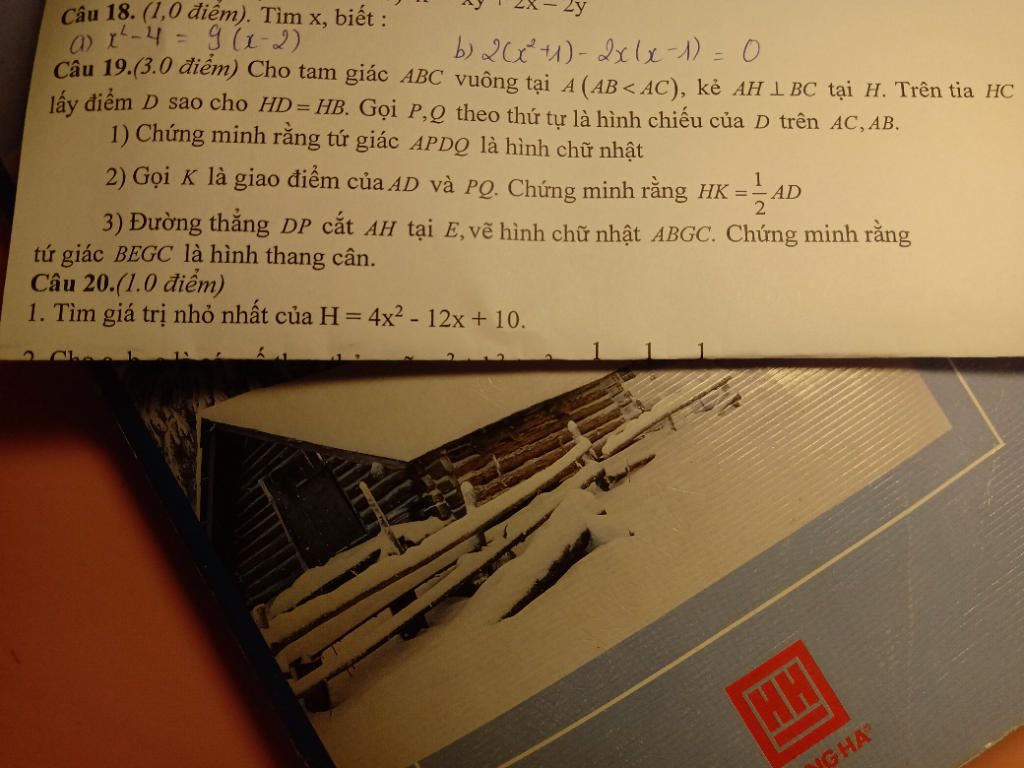 xy + 2x – 2y
Câu 18. (1,0 điểm). Tìm x, biết :
a) x² - 4 = 9 (x - 2) b) 2(x² + 1) - 2x(x - 1) = 0
Câu 19.(3.0 điểm) Cho tam giác ABC vuông tại A (AB < AC), kẻ AH ⊥ BC tại H. Trên tia HC
lấy điểm D sao cho HD = HB. Gọi P,Q theo thứ tự là hình chiếu của D trên AC, AB.
1) Chứng minh rằng tứ giác APDQ là hình chữ nhật
2) Gọi K là giao điểm của AD và PQ. Chứng minh rằng HK = 1/2 AD
3) Đường thẳng DP cắt AH tại E, vẽ hình chữ nhật ABGC. Chứng minh rằng
tứ giác BEGC là hình thang cân.
Câu 20.(1.0 điểm)
1. Tìm giá trị nhỏ nhất của H = 4x² - 12x + 10.
HH
NG HA